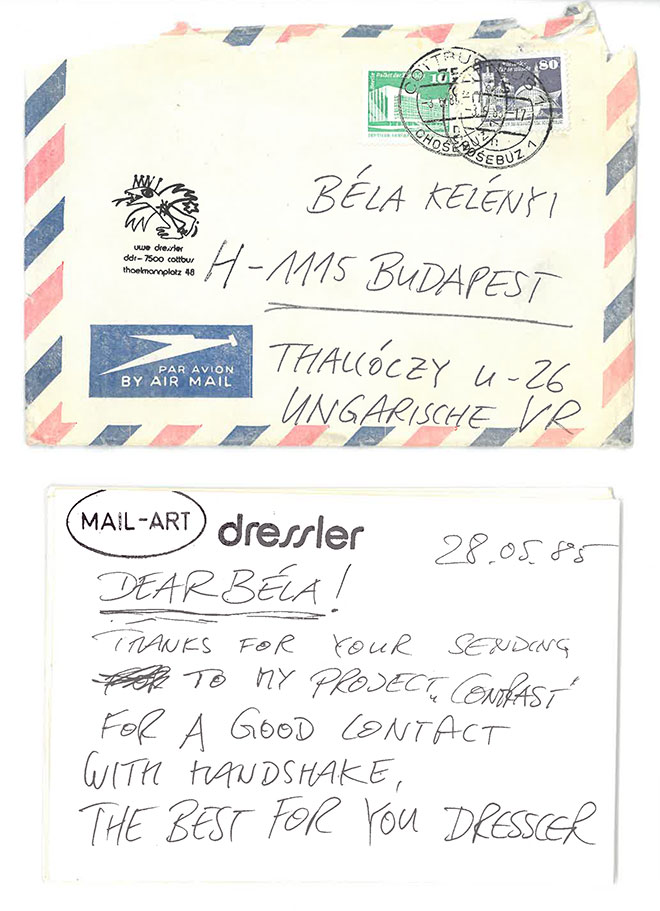 10
80
COTTBUS 1
75
CHOŚEBUZ 1
BÉLA KELÉNYI
uwe dressler
ddr-7500 cottbus
thaelmannplatz 48
H-1115 BUDAPEST
PAR AVION
BY AIR MAIL
THALLÓCZY u-26
UNGARISCHE VR
MAIL-ART
dressler
28.05.85
DEAR BÉLA!
THANKS FOR YOUR SENDING
TO MY PROJECT „CONTRAST“
FOR A GOOD CONTACT
WITH HANDSHAKE,
THE BEST FOR YOU DRESSLER